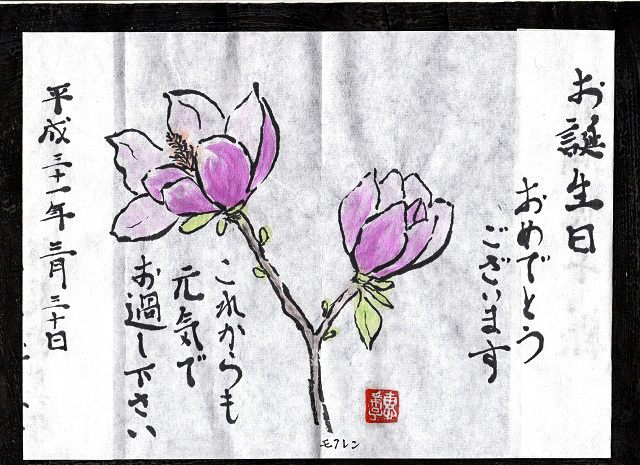 お誕生日
おめでとう
ございます
これからも
元気で
お過し下さい
平成三十一年三月三十日
モクレン